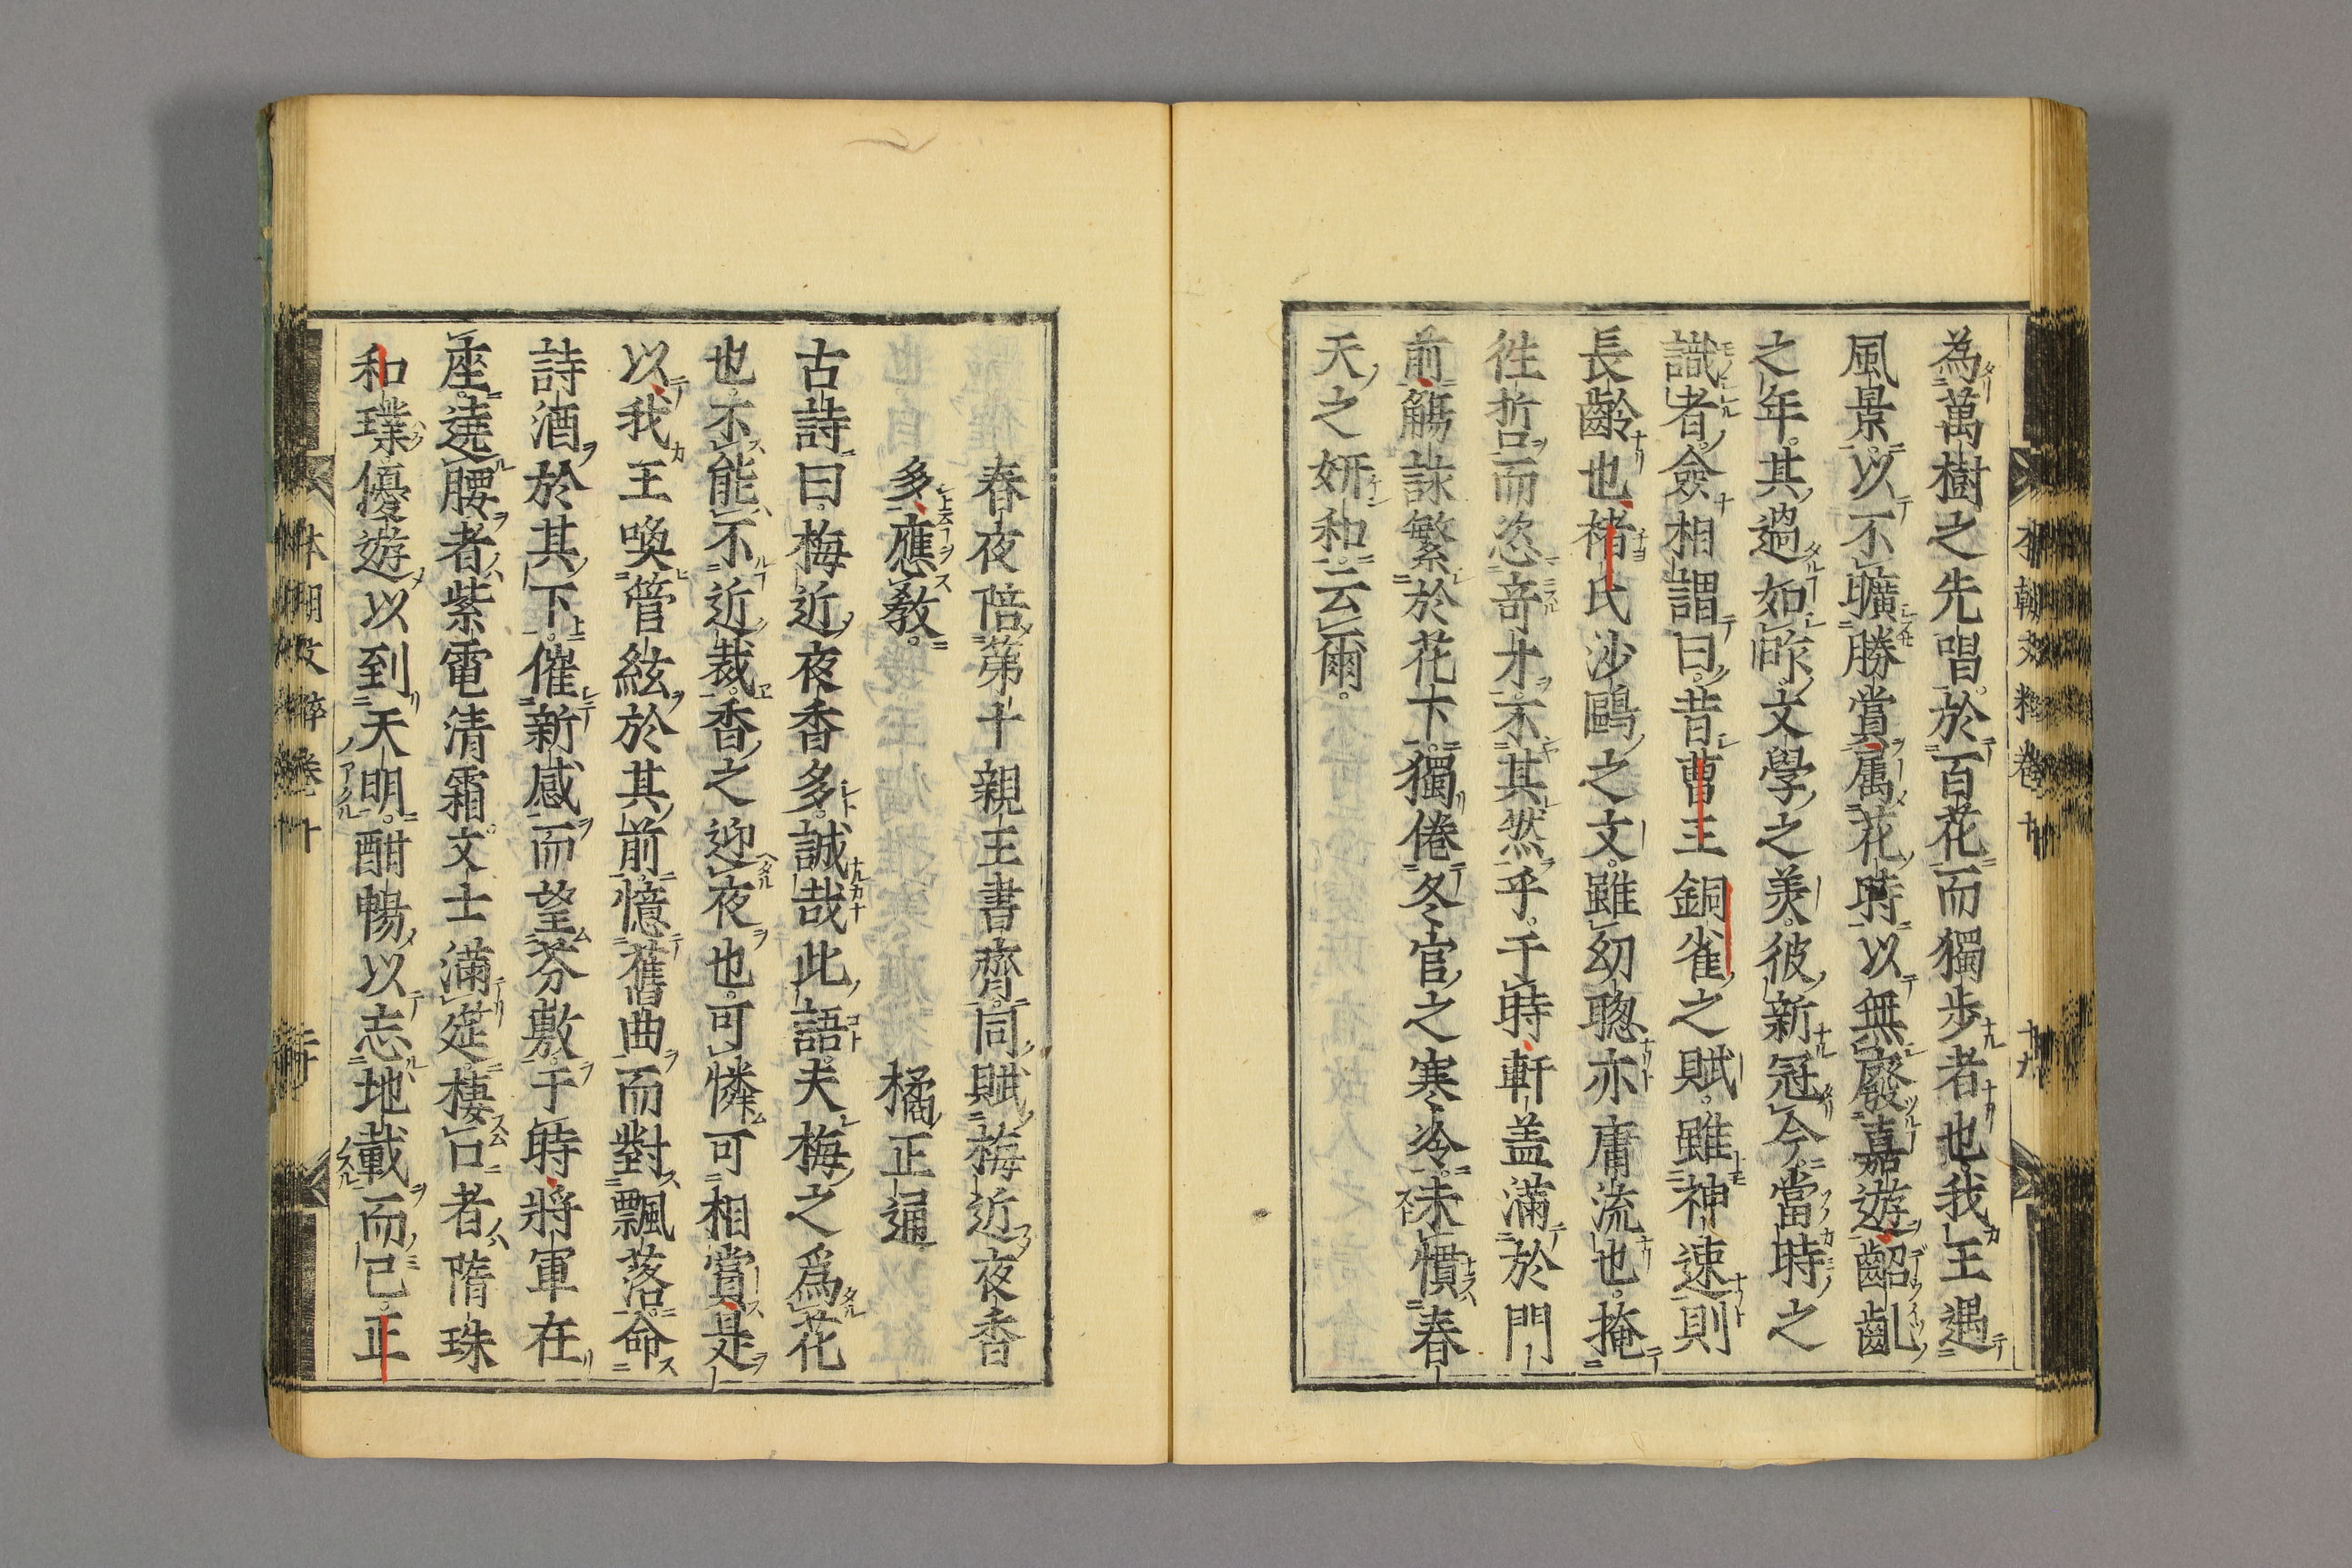 為萬樹之先唱。於百花而獨歩者也。我王遇
風景。以不曠勝賞。属花時以無廢嘉遊。齠齓
之年。其過如昨。文學之美。彼新冠。今當時之
識者。僉相謂曰。昔曹王銅雀之賦。雖神速則
長齡也。褚氏沙鷗之文。雖幼聰亦庸流也。掩
徃哲而恣竒才。不其然乎。于時軒盖滿於門
前。觴詠繁於花下。獨倦冬官之寒冷。未慣春
天之妍和云爾。
本朝文粹卷十 十九
春夜陪第十親王書齋。同賦梅近夜香
多。應教。 橘正通
古詩曰。梅近夜香多。誠哉此語。夫梅之爲花
也。不能不近裁。香之迎夜也。可憐可相賞。是
以我王喚管絃於其前。憶舊曲而對飄落。命
詩酒於其下。催新感而望芬敷。于時將軍在
座。遶腰者紫電清霜。文士滿筵。棲口者隋珠
和璞。優遊以到天明。酣暢以忘地載而已。正
本朝文粹卷十